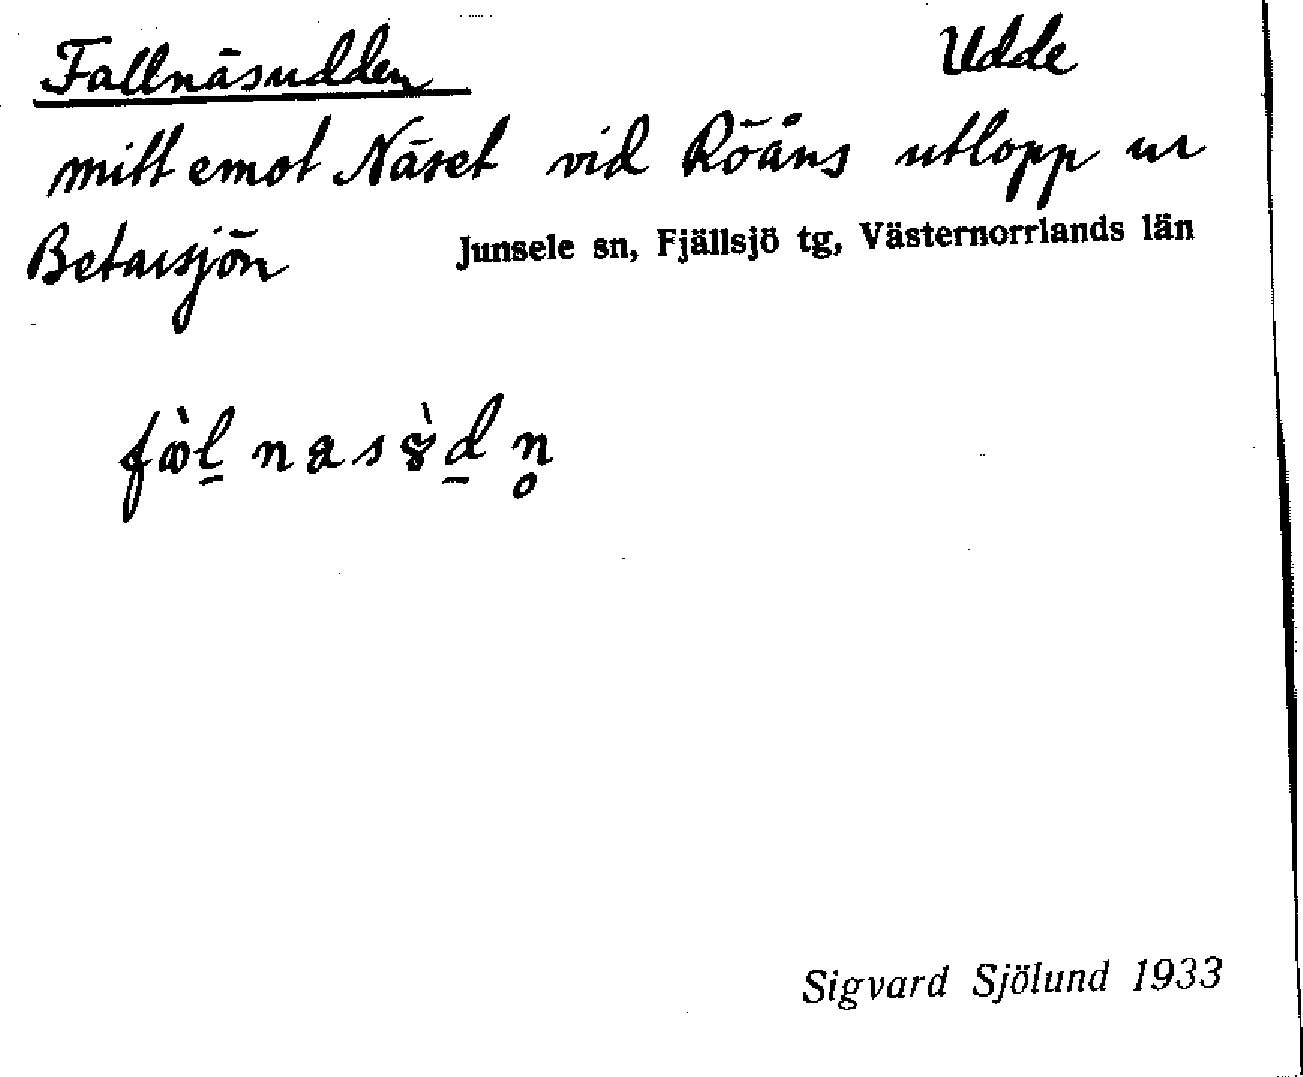 Fallnäsudden Udde
mitt emot Näset vid Röåns utlopp ur
Betarsjön Junsele sn, Fjällsjö tg, Västernorrlands län
Sigvard Sjölund 1933